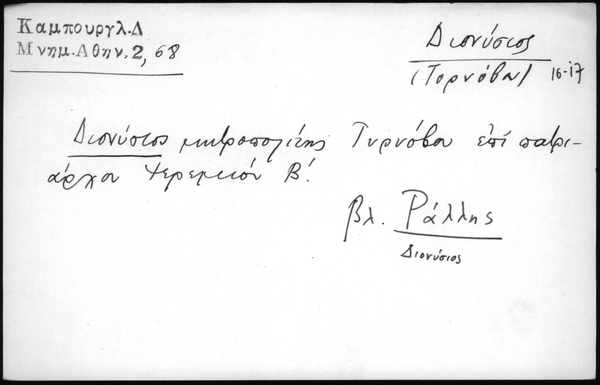 Καμπουργλ.Δ
Μνημ.Αθην.2, 68
Διονύσιος
(Τορνόβου) 16-17
Διονύσιος μητροπολίτης Τυρνόβου ἐπί πατρι-
άρχου Ἰερεμίου Β΄.
βλ. Ράλλης
Διονύσιος